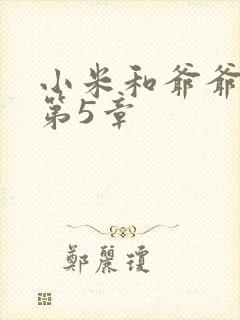 小米和爷爷
第5章
鄭麗瓊